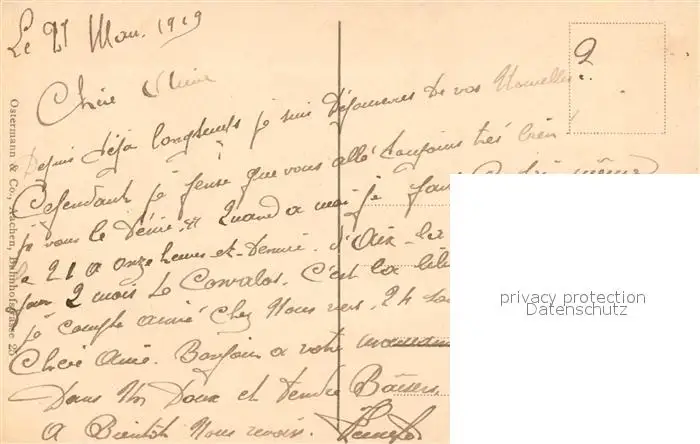 Le 21 Mars. 1919
2
Chère Amie
Depuis déjà longtemps je suis Dépourvues De vos Nouvelles.
Cependant je pense que vous allé toujours très bien!
je vous le Désire. Quand a moi je
le 21 a onze heures et Demie. D'Aix-la
pour 2 mois Le Convalos. C'est la
je compte arrivé Chez Nous vers. 24
Chère Amie. Bonjour a votre
Dans Un Doux et tendre Baisers.
A Bientôt Nous revoir.
Ostermann & Co., Aachen, Bahnhofstrasse 25
privacy protection
Datenschutz